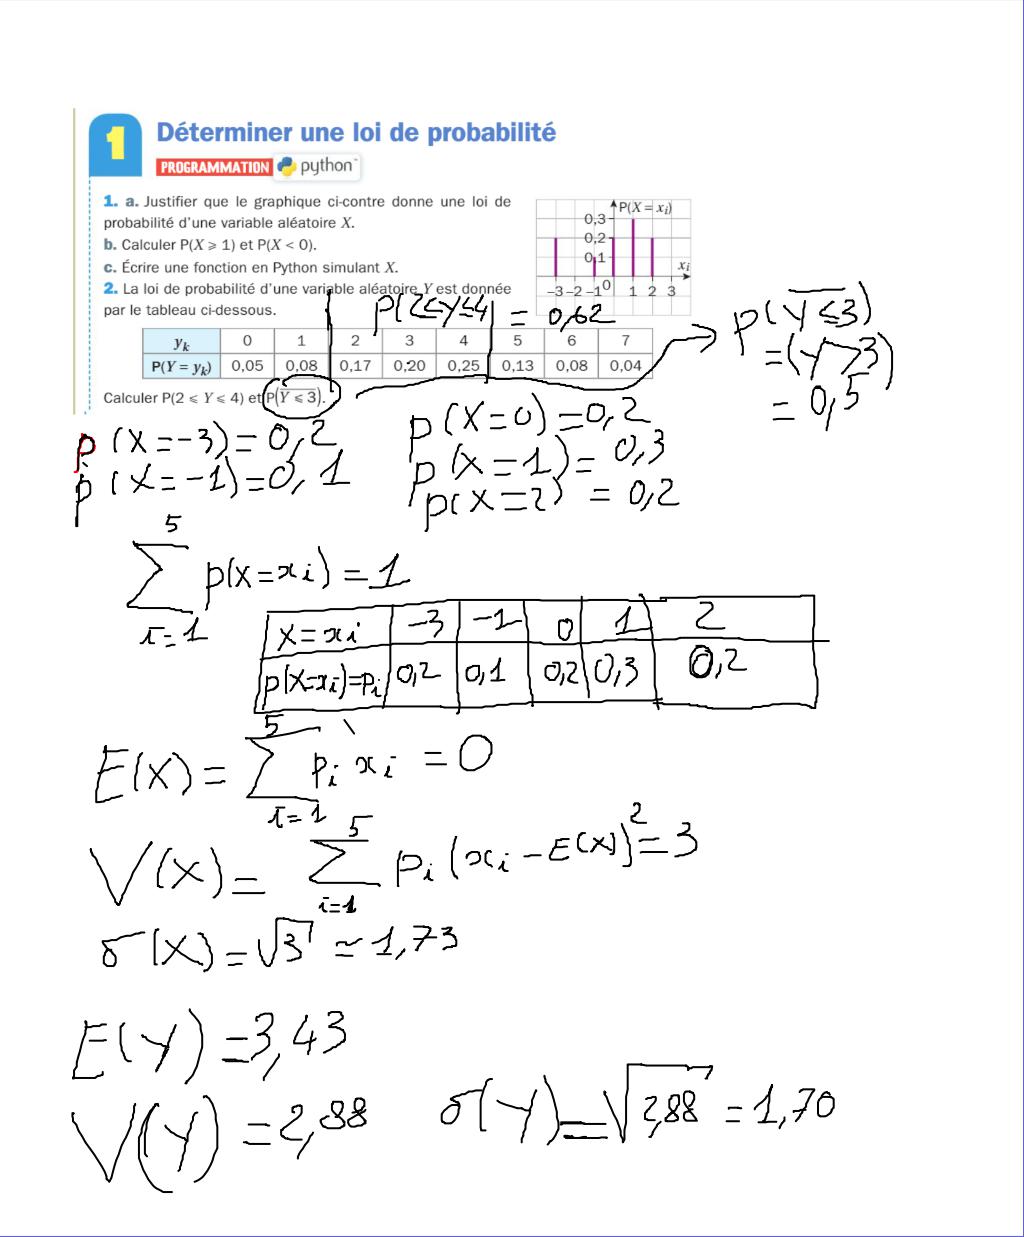 1 Déterminer une loi de probabilité
PROGRAMMATION python
1. a. Justifier que le graphique ci-contre donne une loi de
probabilité d'une variable aléatoire X.
b. Calculer P(X ⩾ 1) et P(X < 0).
c. Écrire une fonction en Python simulant X.
2. La loi de probabilité d'une variable aléatoire Y est donnée
par le tableau ci-dessous.
P(X = xᵢ)
0,3
0,2
0,1
xᵢ
-3 -2 -1 0 1 2 3
P(2≤Y≤4) = 0,62
yₖ 0 1 2 3 4 5 6 7
P(Y = yₖ) 0,05 0,08 0,17 0,20 0,25 0,13 0,08 0,04
Calculer P(2 ⩽ Y ⩽ 4) et P(Y ⩽ 3).
P(Y≤3)
=(Y>3)
= 0,5
p(X=-3)=0,2
p(X=-1)=0,1
p(X=0)=0,2
p(X=1)=0,3
p(X=2)=0,2
5
∑ p(X=xi)=1
i=1
X=xi -3 -1 0 1 2
p(X=xi)=pi 0,2 0,1 0,2 0,3 0,2
5
E(X)= ∑ pi xi = 0
i=1
5
V(X)= ∑ pi(xi-E(X))²=3
i=1
σ(X)=√3 ≃1,73
E(Y)=3,43
V(Y)=2,88
σ(Y)=√2,88 =1,70